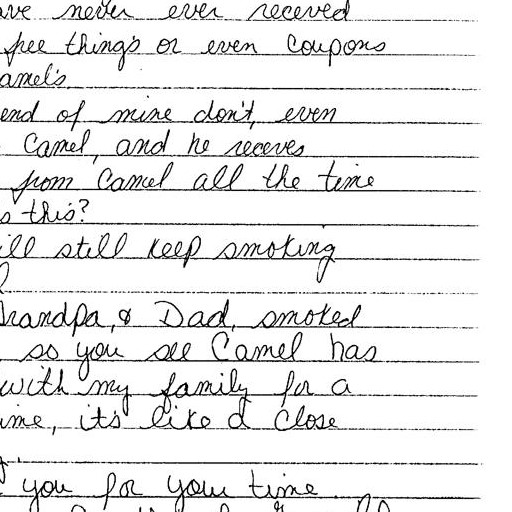 ave never ever receved
free things or even coupons
amel's
end of mine don't, even
Camel, and he receves
from Camel all the time
s this?
ill still keep smoking
Grandpa, & Dad, smoked
so you see Camel has
with my family for a
ime, it's like a close
you for your time.